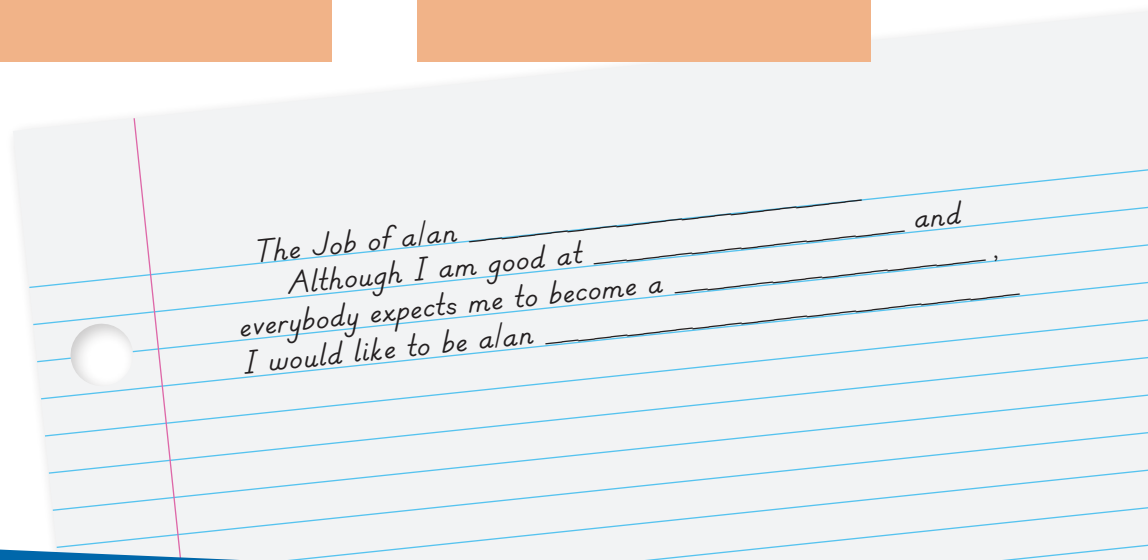 The Job of a/an ____________
Although I am good at ____________ and
everybody expects me to become a ____________ ,
I would like to be a/an ____________